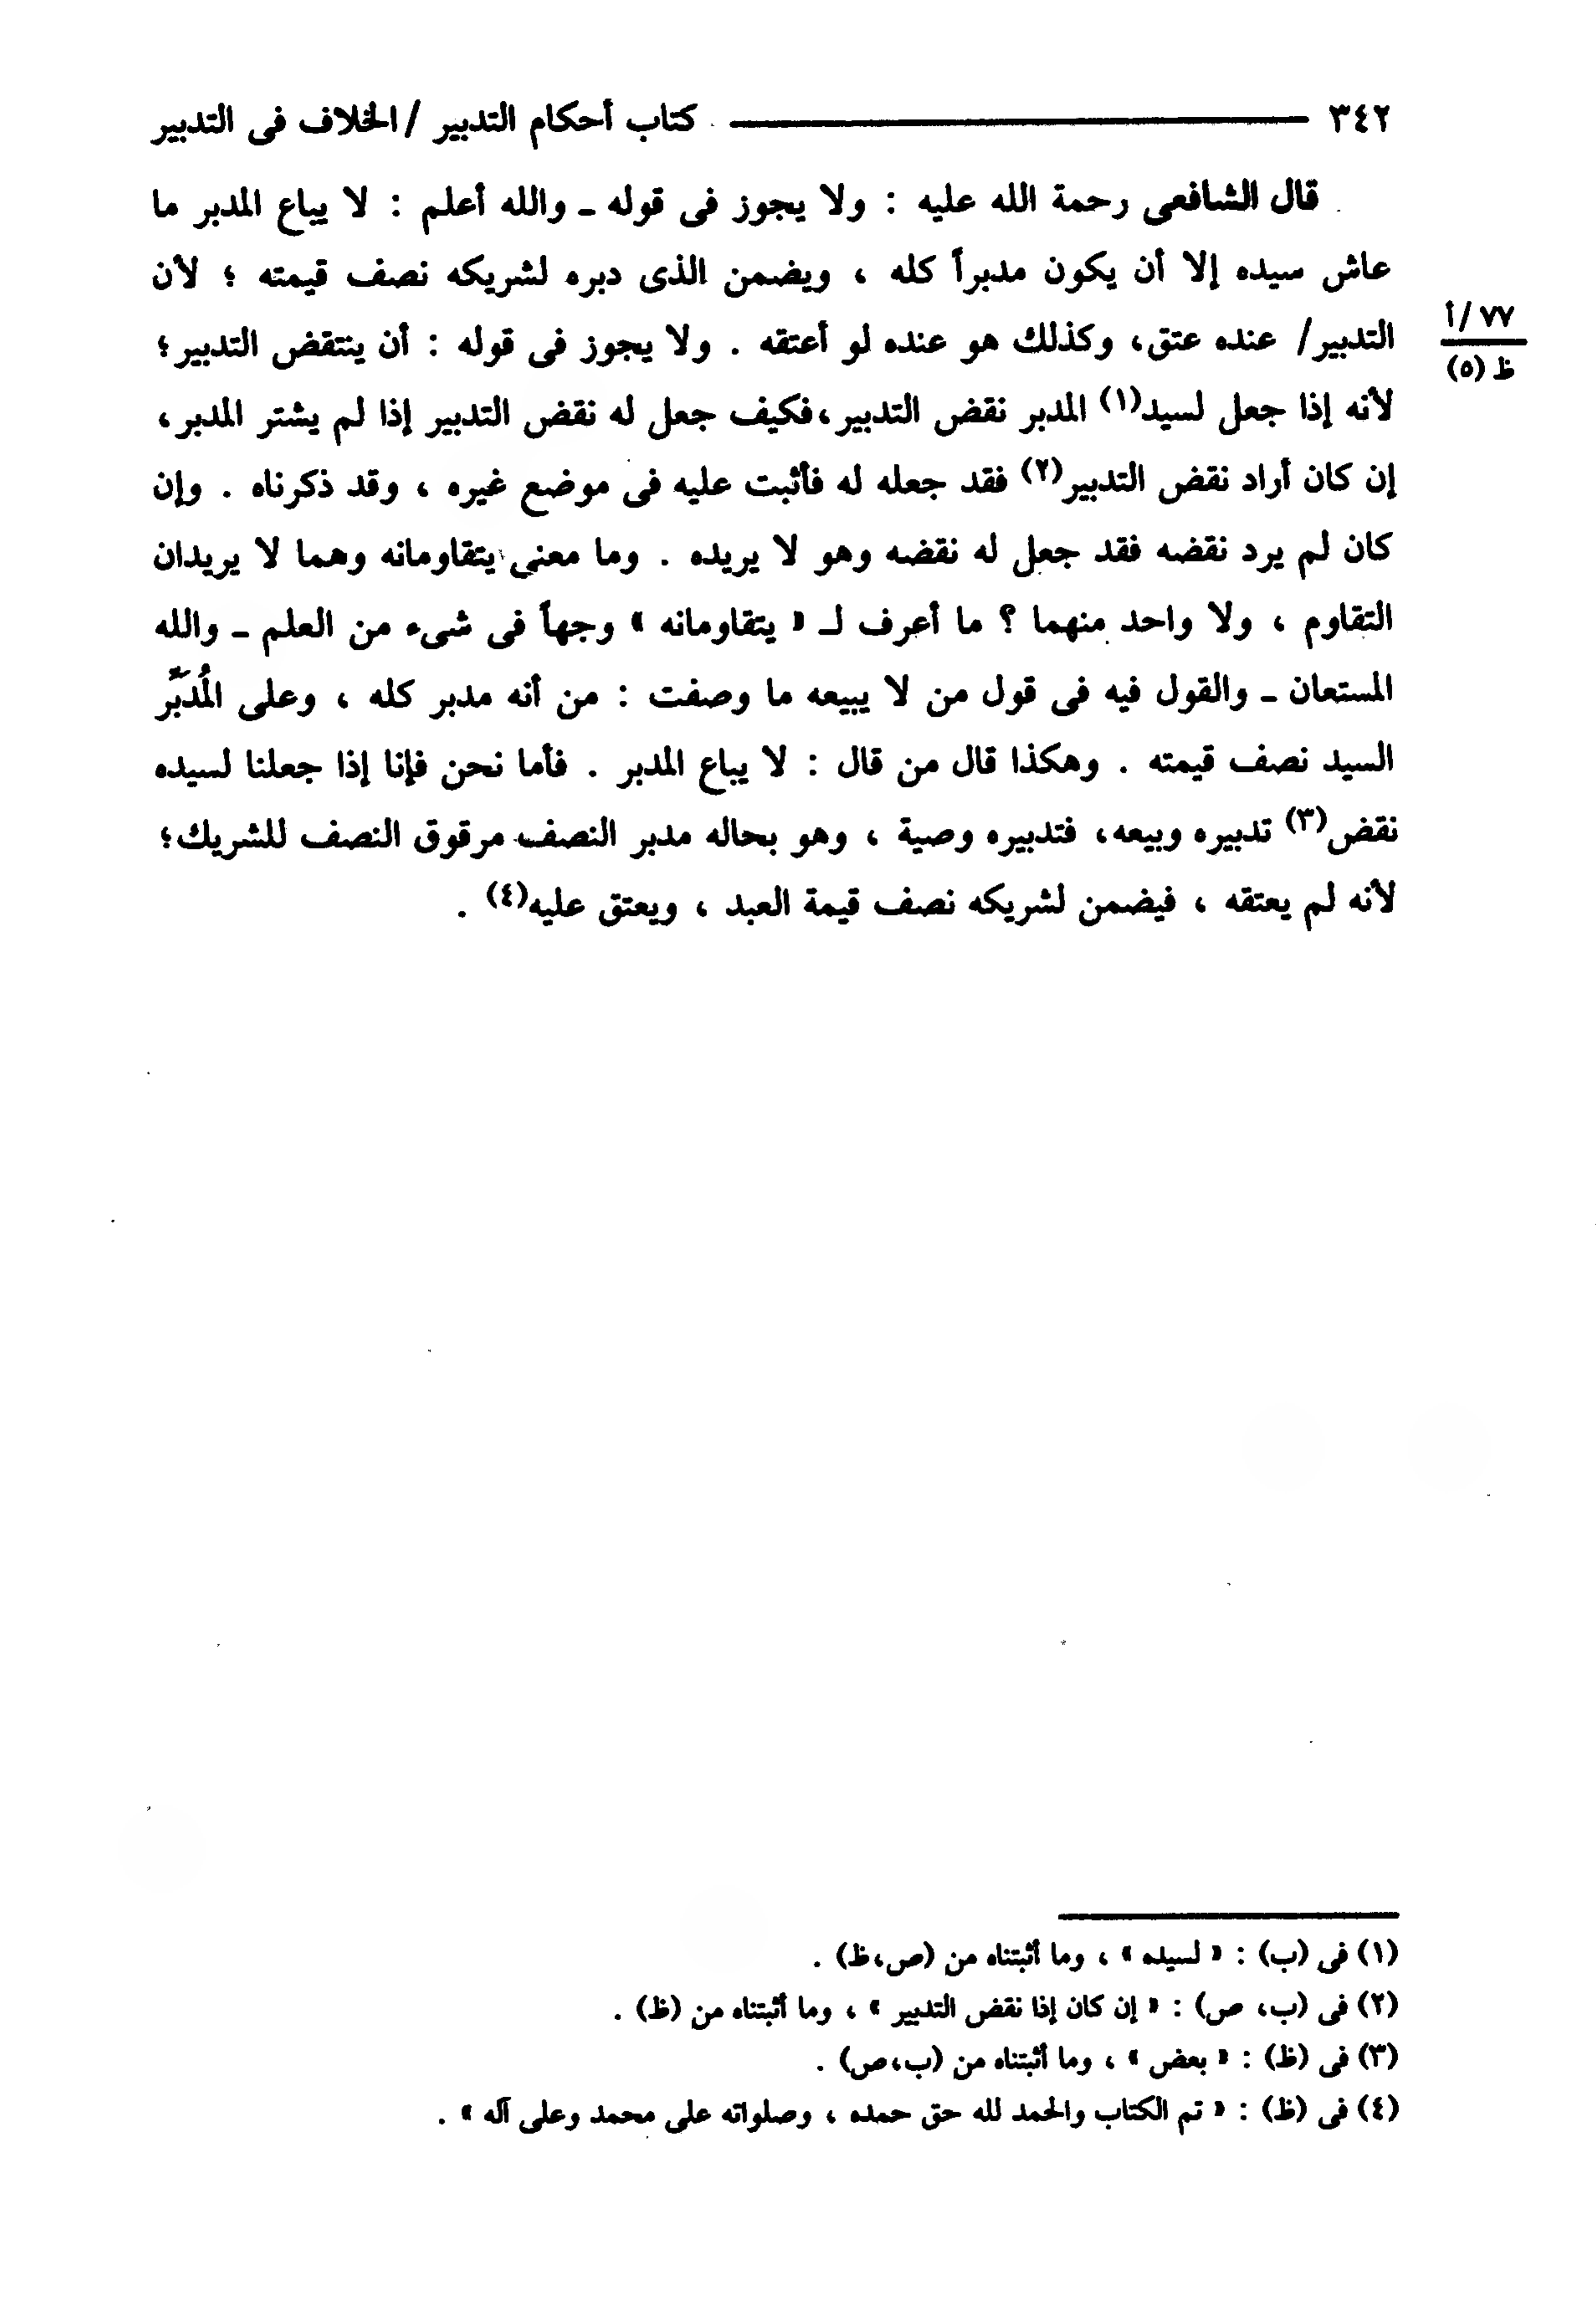 ٣٤٢ ــــــــــــــــــ كتاب أحكام التدبير / الخلاف فى التدبير
قال الشافعى رحمة الله عليه : ولا يجوز فى قوله ـ والله أعلم : لا يباع المدبر ما
عاش سيده إلا أن يكون مدبراً كله ، ويضمن الذى دبره لشريكه نصف قيمته ؛ لأن
التدبير/ عنده عتق، وكذلك هو عنده لو أعتقه . ولا يجوز فى قوله : أن ينتقض التدبير؛
٧٧/ أ
ظ (٥)
لأنه إذا جعل لسيد(١) المدبر نقض التدبير، فكيف جعل له نقض التدبير إذا لم يشتر المدبر،
إن كان أراد نقض التدبير(٢) فقد جعله له فأثبت عليه فى موضع غيره ، وقد ذكرناه . وإن
كان لم يرد نقضه فقد جعل له نقضه وهو لا يريده . وما معنى يتقاومانه وهما لا يريدان
التقاوم ، ولا واحد منهما ؟ ما أعرف لـ « يتقاومانه » وجهاً فى شىء من العلم ـ والله
المستعان ـ والقول فيه فى قول من لا يبيعه ما وصفت : من أنه مدبر كله ، وعلى المُدَبِّر
السيد نصف قيمته . وهكذا قال من قال : لا يباع المدبر . فأما نحن فإنا إذا جعلنا لسيده
نقض(٣) تدبيره وبيعه، فتدبيره وصية ، وهو بحاله مدبر النصف مرقوق النصف للشريك؛
لأنه لم يعتقه ، فيضمن لشريكه نصف قيمة العبد ، ويعتق عليه(٤) .
(١) فى (ب) : « لسيده » ، وما أثبتناه من (ص،ظ) .
(٢) فى (ب، ص) : « إن كان إذا نقض التدبير » ، وما أثبتناه من (ظ) .
(٣) فى (ظ) : « بعض » ، وما أثبتناه من (ب،ص) .
(٤) فى (ظ) : « تم الكتاب والحمد لله حق حمده ، وصلواته على محمد وعلى آله » .